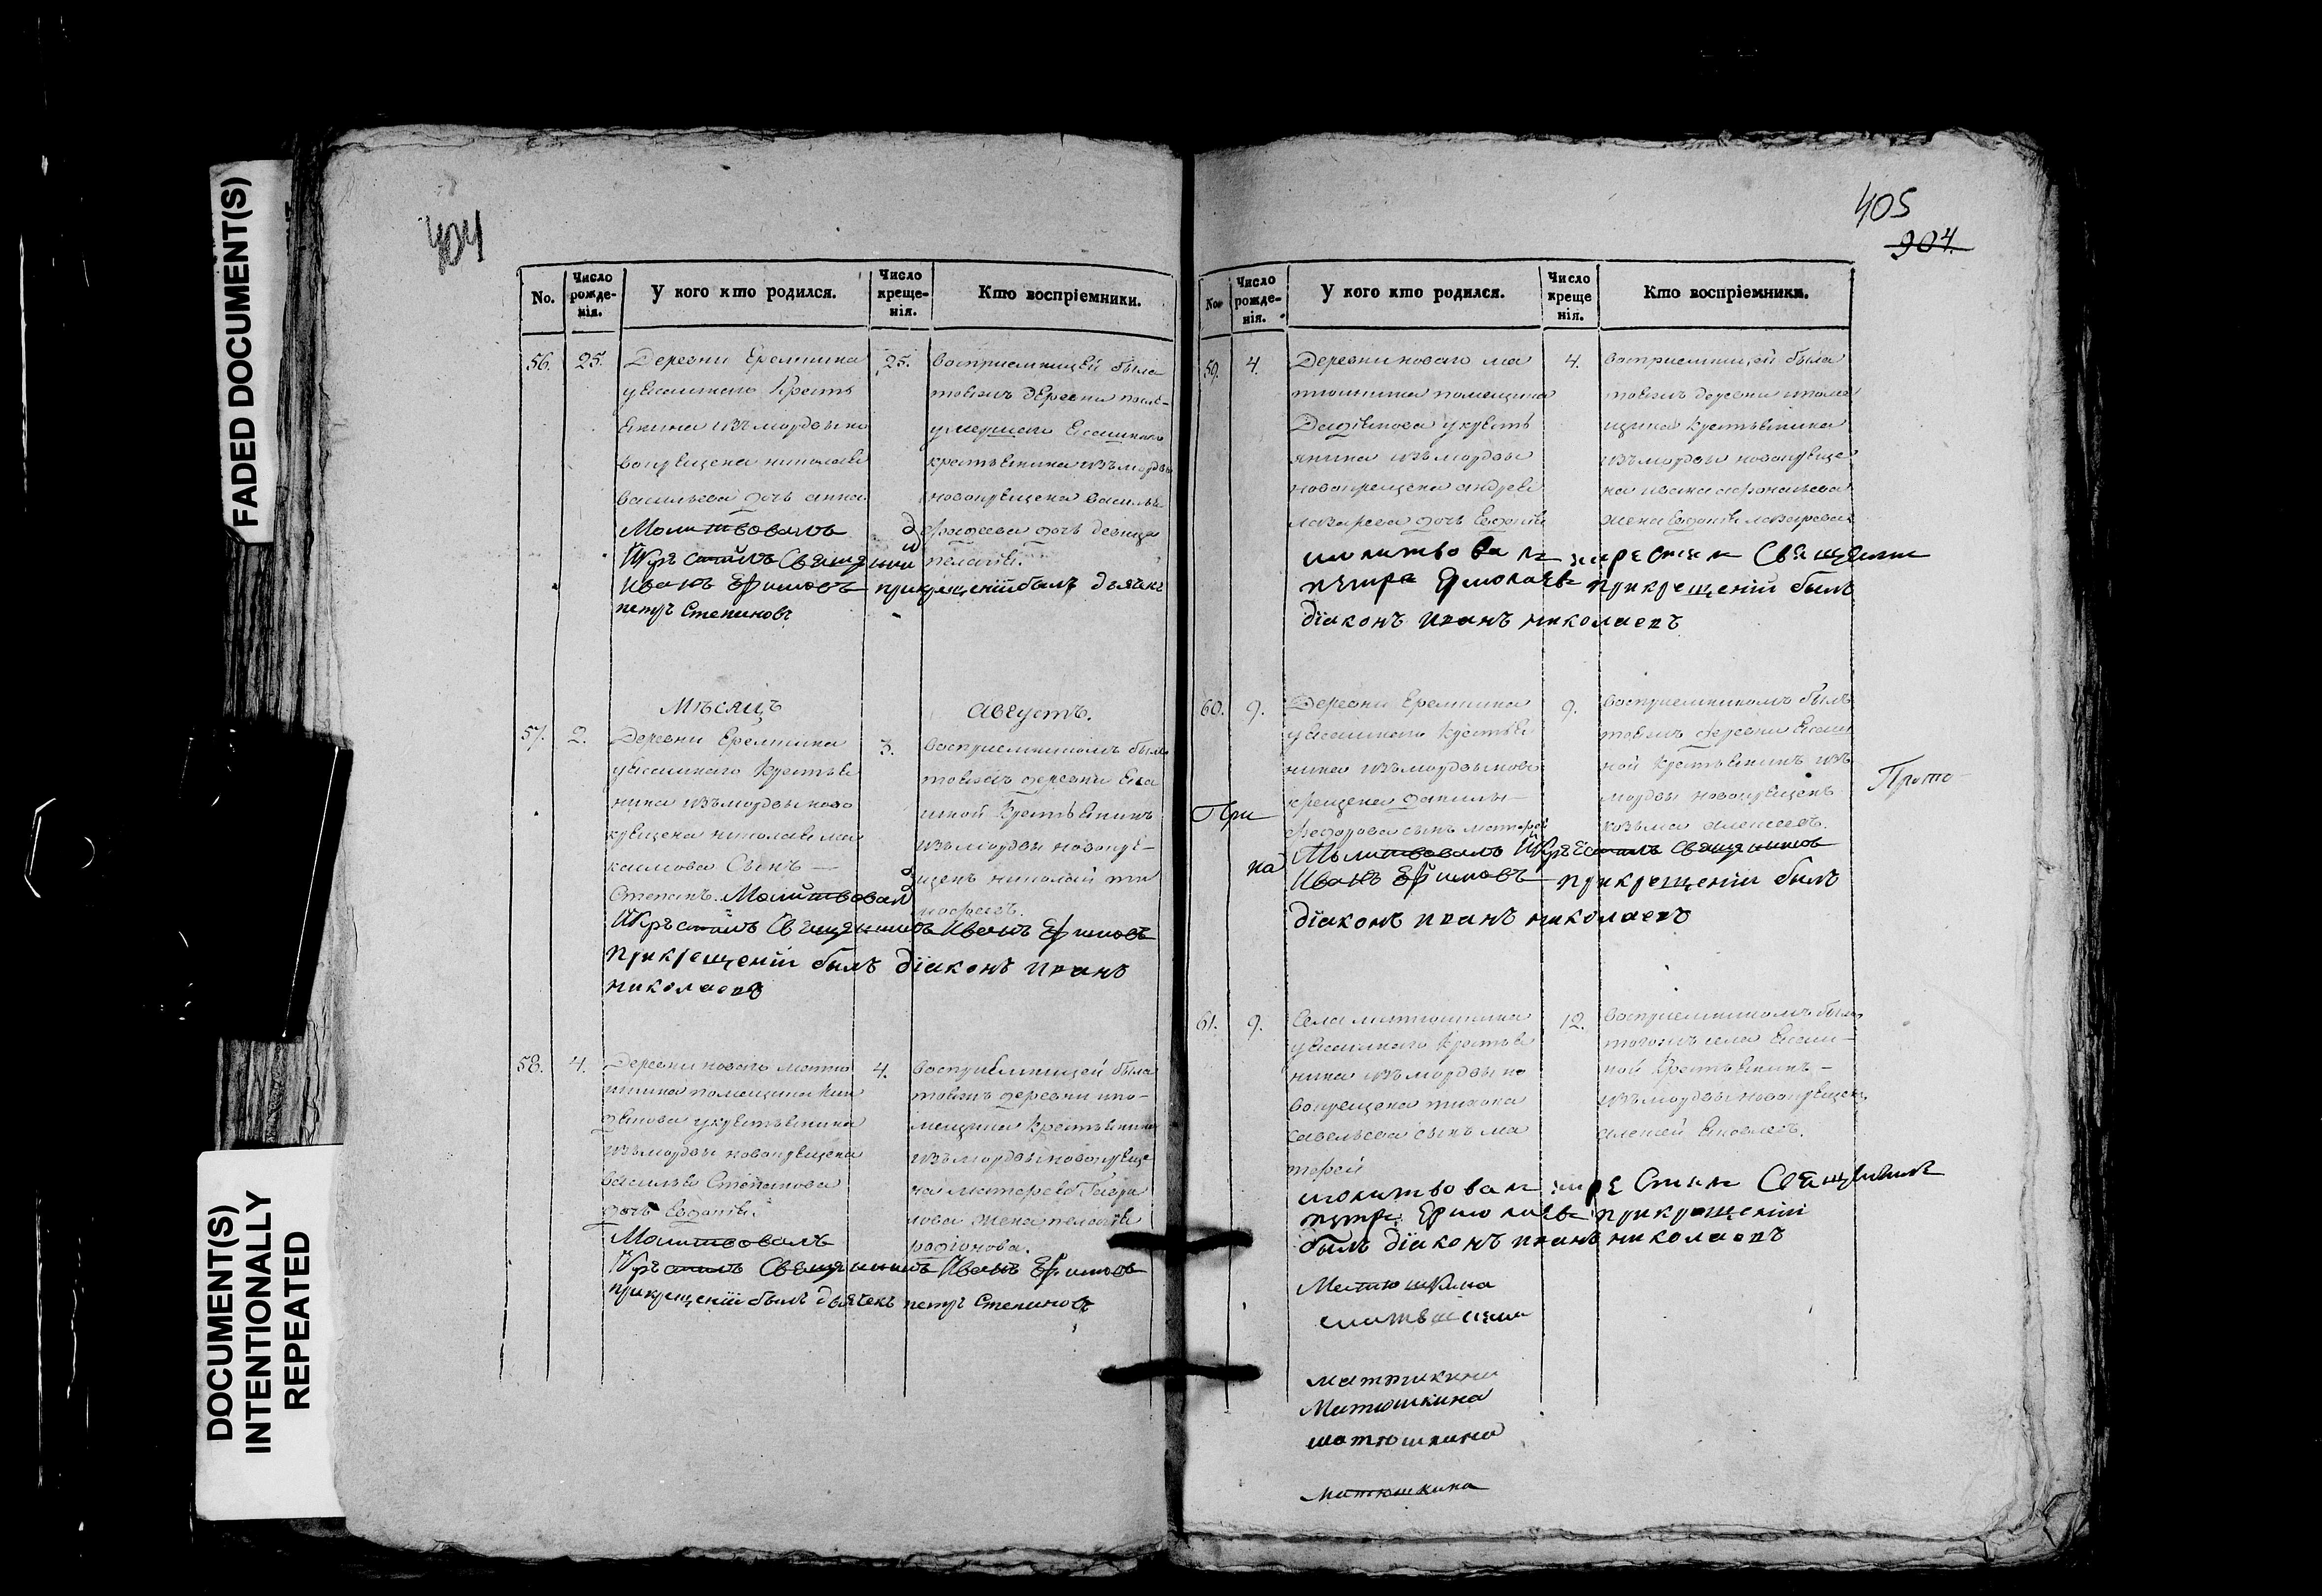 FADED DOCUMENT(S)
DOCUMENT(S)
INTENTIONALLY
REPEATED
404
No.
Число рожде-нія.
У кого кто родился.
Число креще-нія.
Кто воспріемники.
56.
25.
Деревни Еремкина
у Ясашнаго Кресть
янина изъ мордвы но
вокрещена николая
васильева дочь анна
Молитвовалъ
Икрѣстилъ Священик
Иванъ Ефимовъ
прикрещеніи былъ дьячекъ
петръ Степановъ
25.
восприемницей была
тояжъ деревни
умершаго Ясашнаго
крестьянина изъ мордвы
новокрещена василья
дочь девица
пелагѣя.
Мѣсяцъ
Августъ.
57.
2.
Деревни Еремкина
у Ясашнаго Крестья
нина изъ мордвы ново
крещена николая ма
каимова Сынъ —
Степанъ. Молитвовал
Икрѣстилъ Священникъ Иванъ Ефимовъ
прикрещеніи былъ діаконъ иванъ
николаевъ
3.
восприемникомъ былъ
тояжъ деревни Яса
шной Крестьянинъ
изъ мордвы новокре-
щенъ николай ти
мофеевъ.
58.
4.
Деревни новаго матю
шкина помещика
у крестьянина
изъ мордвы новокрещена
василья Степанова
дочь Евдокія.
Молитвовалъ
Крѣстилъ Священникъ Иванъ Ефимовъ
прикрещеніи былъ дьячекъ петръ Степановъ
4.
восприемницей была
тояжъ деревни ипо-
мещика Крестьянина
изъ мордвы новокреще
на матфея Гаври
лова жена пелагѣя
родіонова.
405
904.
No
Число рожде-нія.
У кого кто родился.
Число креще нія.
Кто воспріемники.
59.
4.
Деревни новаго ма
тюшкина помещика
Давѣдова у кресть
янина изъ мордвы
новокрещена андрея
лазарева дочь Евдокія
молитвовалъ икрестилъ Священик
петръ Ермолаевъ прикрещеніи былъ
діаконъ иванъ николаевъ
4.
восприемницей была
тояжъ деревни ипоме
щика крестьянина
изъ мордвы новокреще
на ивана афонасьева
жена Евдокія лазарева
60.
9.
Деревни Еремкина
у Ясашнаго Крестья
нина изъ мордвы ново
крещена данилы
федорова сынъ матфей
Молитвовалъ Икрѣстилъ Священникъ
Иванъ Ефимовъ прикрещеніи былъ
діаконъ иванъ николаевъ
9.
восприемникомъ былъ
тояжъ деревни Ясаш
ной Крестьянинъ изъ
мордвы новокрещенъ
козьма алексеевъ.
При
на
Прото
61.
9.
Села матюшкина
у Ясашнаго Крестья
нина изъ мордвы но
вокрещена тихона
савельева сынъ ма
тфей
молитвовалъ икрестилъ Священникъ
петръ Ермолаевъ прикрещеніи
былъ діаконъ иванъ николаевъ
12.
восприемникомъ былъ
тогожъ села Ясаш-
ной Крестьянинъ -
изъ мордвы новокрещенъ
алексей Яковлевъ.
Матюшкина
матюшкина
Матюшкина
матюшкина
матюшкина